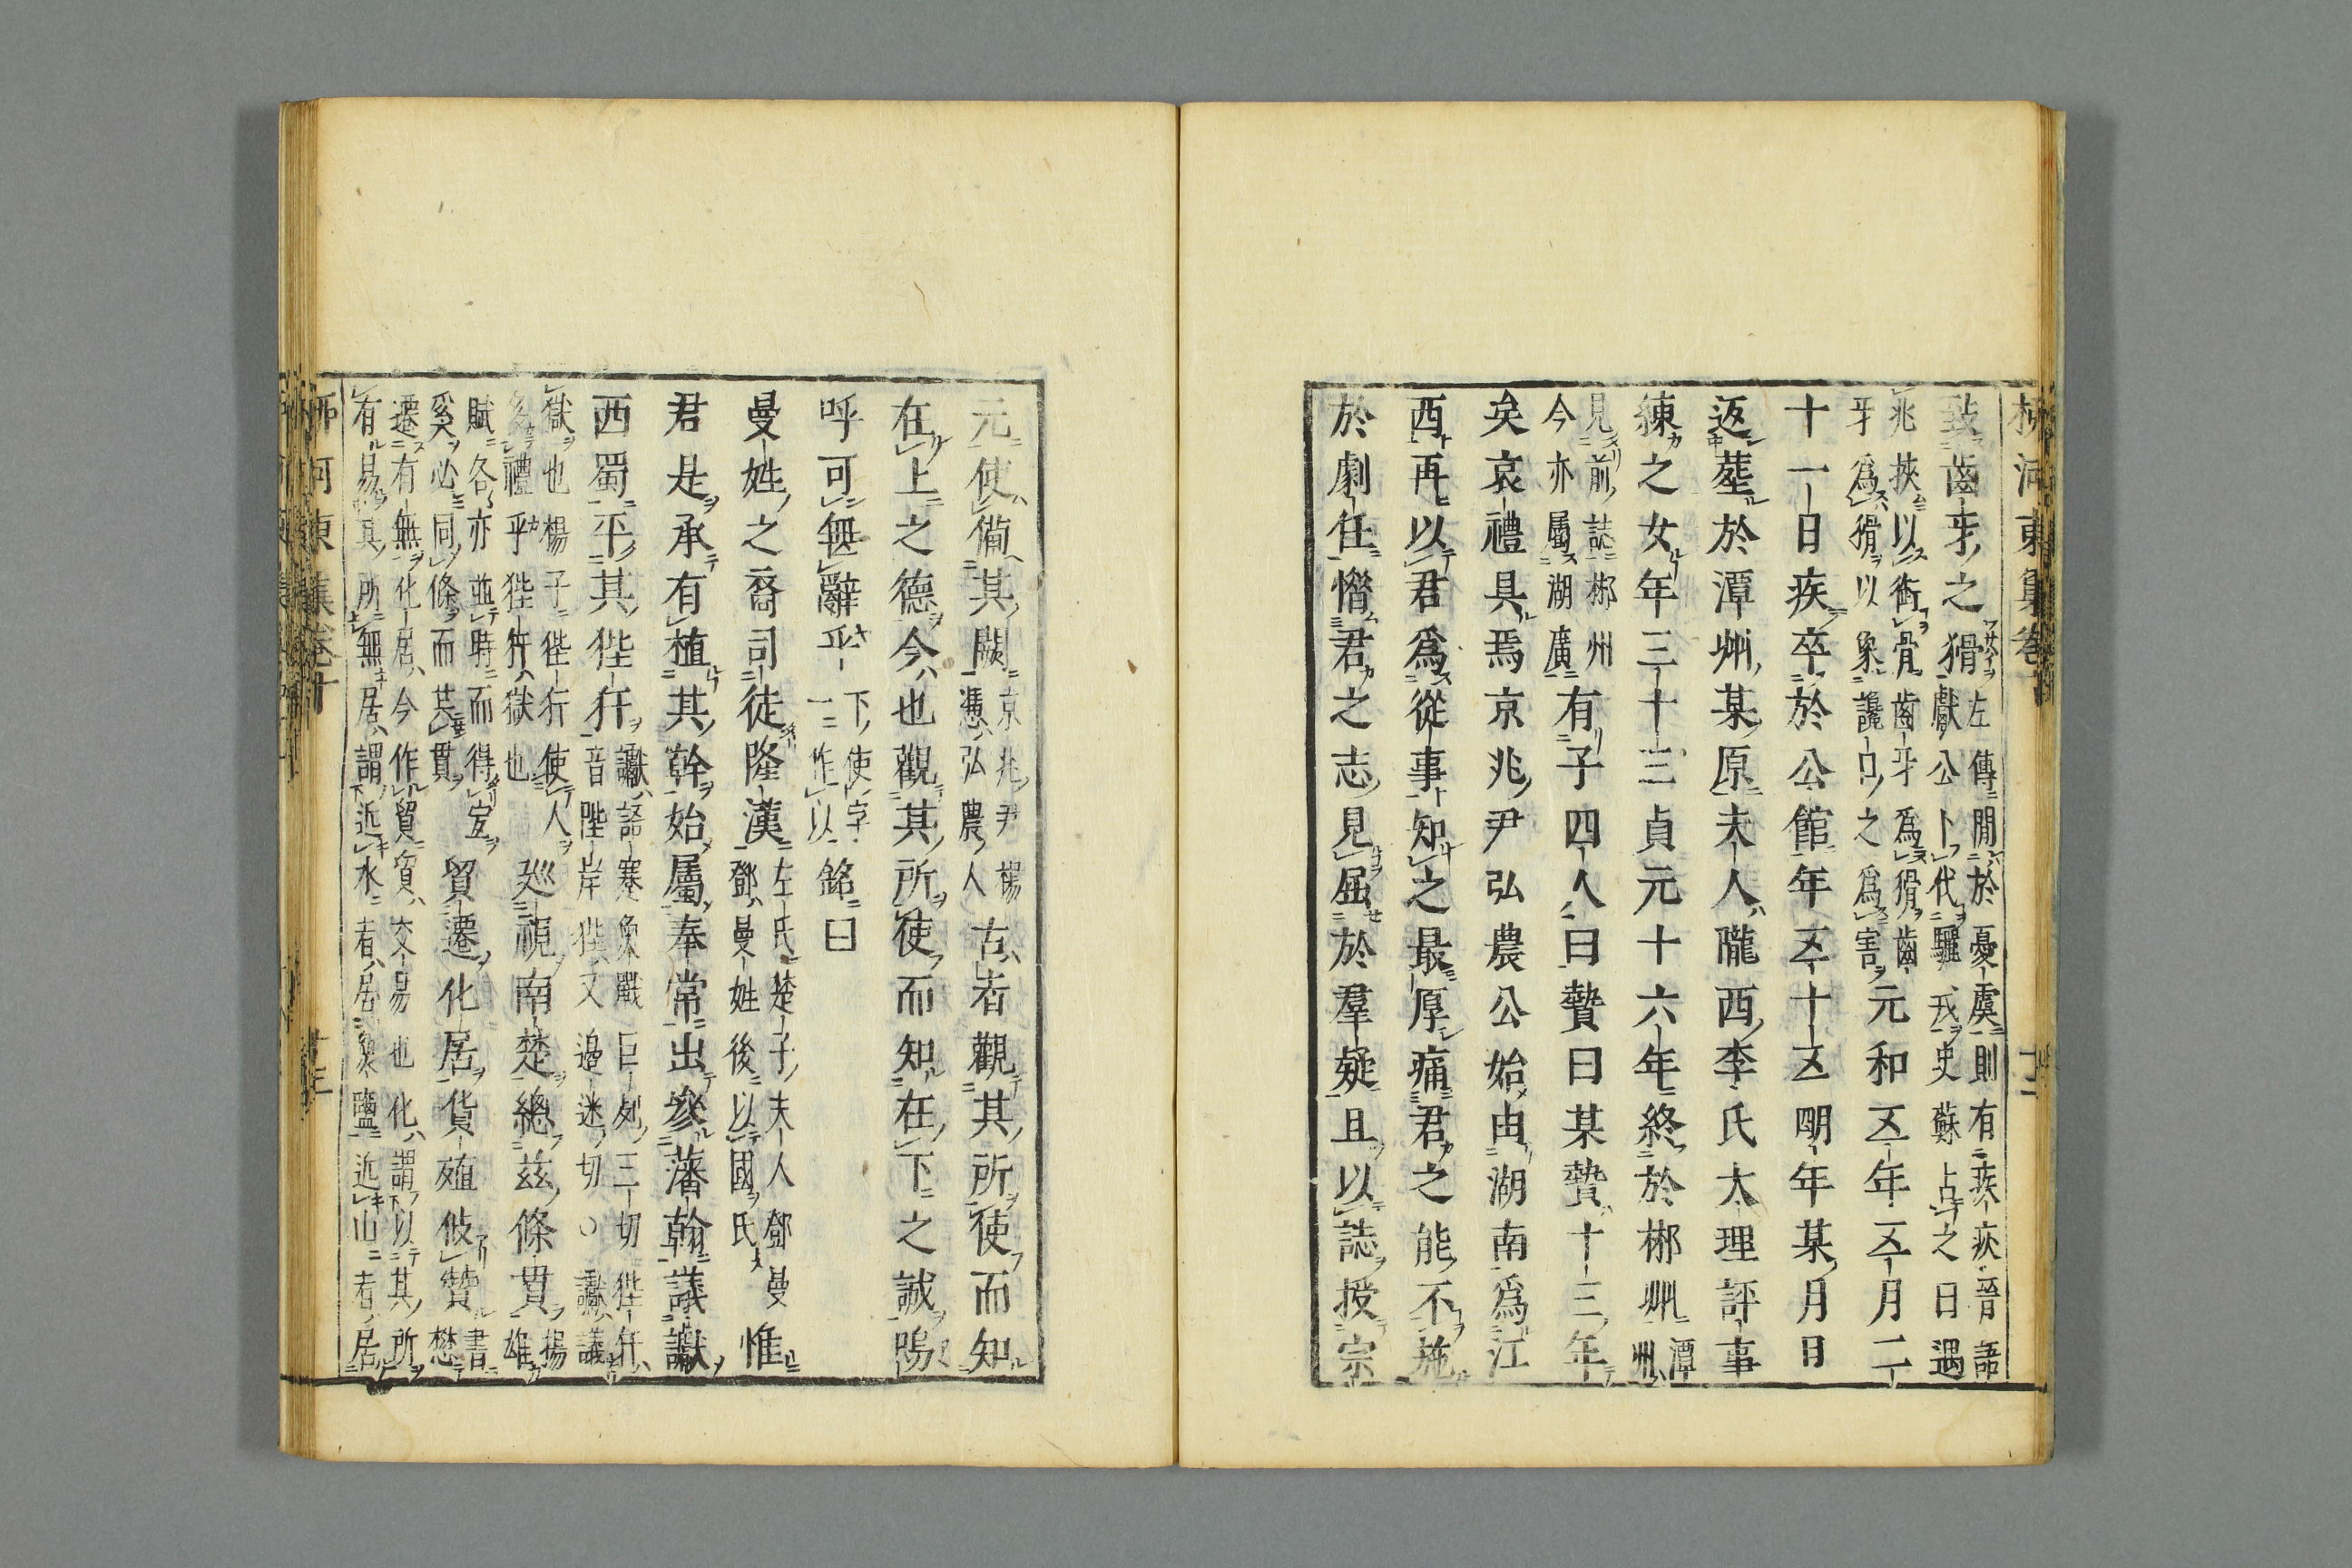 柳河東集卷十
致齒牙之猾左傳閒於憂虞則有疾疢晉語獻公卜代驪戎史蘇占之曰遇
兆挾以銜骨齒牙爲猾齒牙爲猾以象讒口之爲害元和五年五月二
十一日疾卒於公館年五十五明年某月日
返葬於潭州某原夫人隴西李氏大理評事
練之女年三十三貞元十六年終於郴州潭州
見前誌郴州今亦屬湖廣有子四人曰贄曰某贄十三年
矣哀禮具焉京兆尹弘農公始由湖南爲江
西再以君爲從事知之最厚痛君之能不施
於劇任憯君之志見屈於羣疑且以誌授宗
元使備其闕京兆尹楊憑弘農人古者觀其所使而知
在上之德今也觀其所使而知在下之誠嗚
呼可無辭乎下使字一作以銘曰
曼姓之裔司徒隆漢左氏楚子夫人鄧曼鄧曼姓後以國氏惟
君是承有植其幹始屬奉常出參藩翰議讞
西蜀平其狴犴讞語蹇魚戰巨列三切狴犴音陛岸狴又邊迷切○讞議
獄也楊子狴犴使人多禮乎狴犴獄也巡視南楚總茲條貫揚雄
賦各亦並時而得宜奚必同條而共貫貿遷化居貨殖攸贊書懋
遷有無化居今作貿貿交易也化謂以其所
有易其所無居謂近水者居魚鹽近山者居
柳河東集卷十